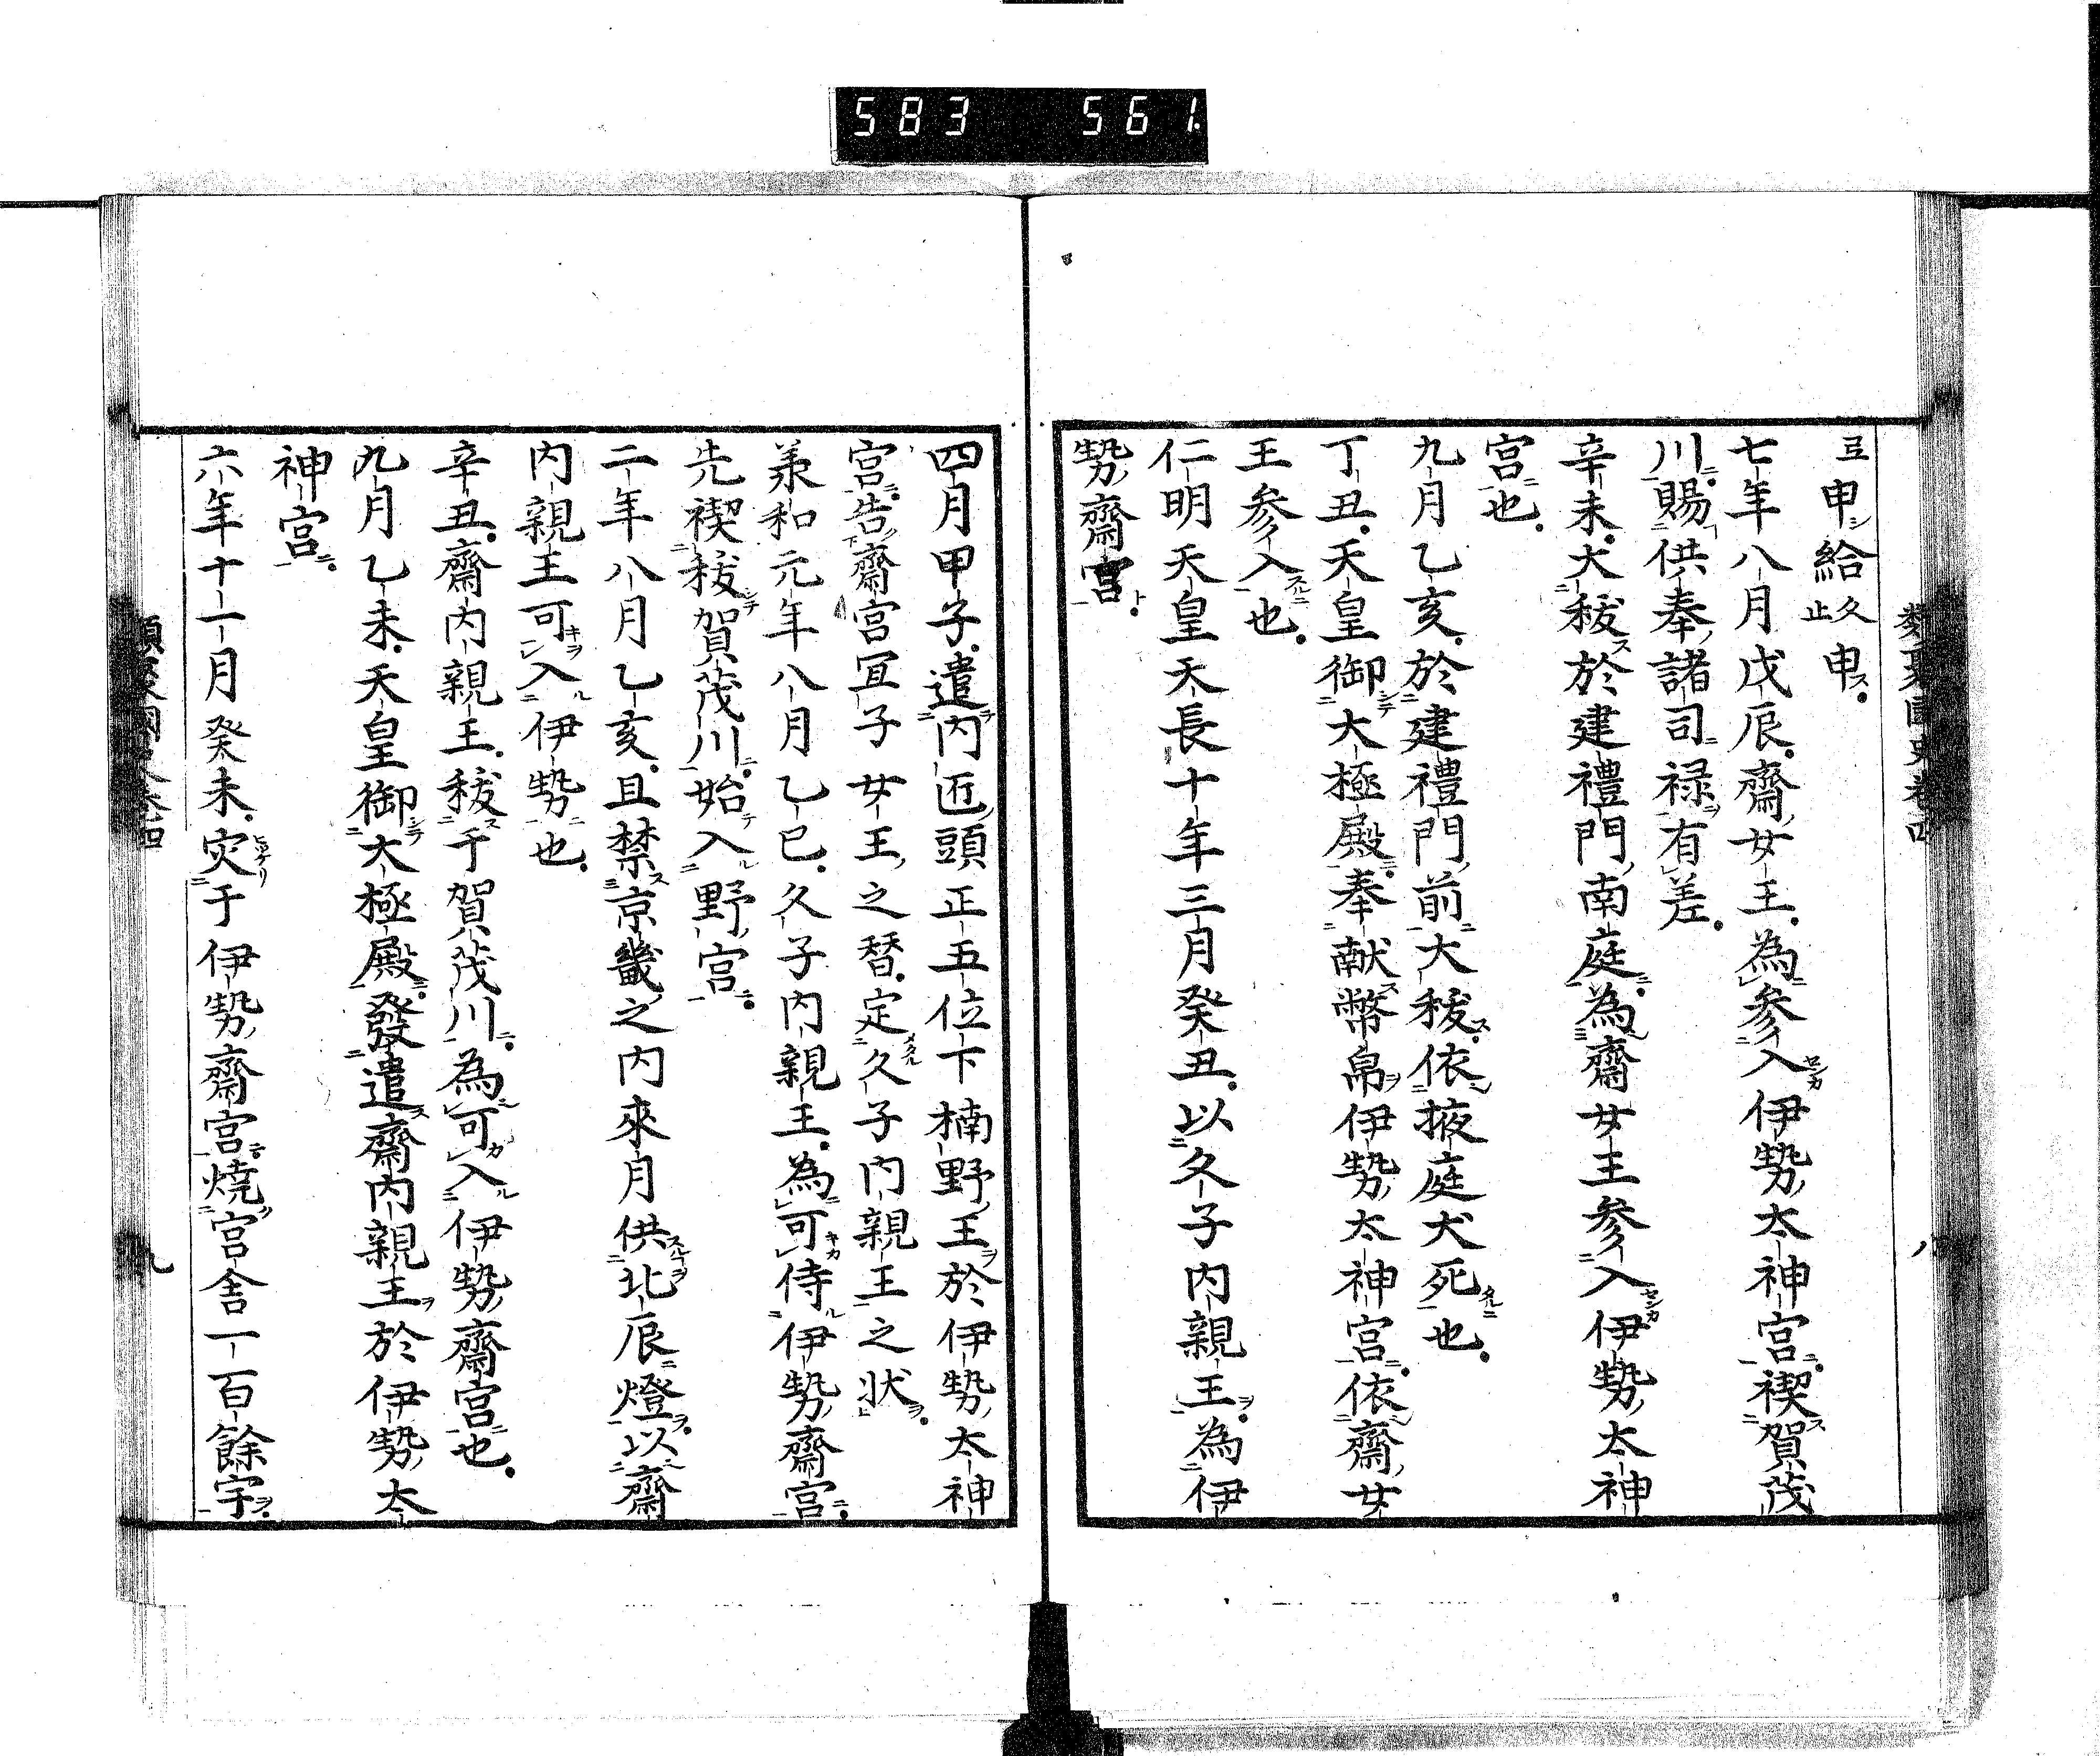 583 561.
類聚國史卷四 八
豆申給久止申
七年八月戊辰齋女王為參入伊勢太神宮禊賀茂
川賜供奉諸司祿有差
辛未大秡於建禮門南庭為齋女王參入伊勢太神
宮也
九月乙亥於建禮門前大秡依掖庭犬死也
丁丑天皇御大極殿奉献幣帛伊勢太神宮依齋女
王參入也
仁明天皇天長十年三月癸丑以久子內親王為伊
勢齋宮
四月甲子遣內匠頭正五位下楠野王於伊勢太神
宮告齋宮宜子女王之替定久子內親王之状
承和元年八月乙巳久子內親王為可侍伊勢齋宮
先禊秡賀茂川始入野宮
二年八月乙亥且禁京畿之內來月供北辰燈以齋
內親王可入伊勢也
辛丑齋內親王秡于賀茂川為可入伊勢齋宮也
九月乙未天皇御大極殿發遣齋內親王於伊勢太
神宮
六年十一月癸未灾于伊勢齋宮燒宮舍一百餘宇
類聚國史卷四 九